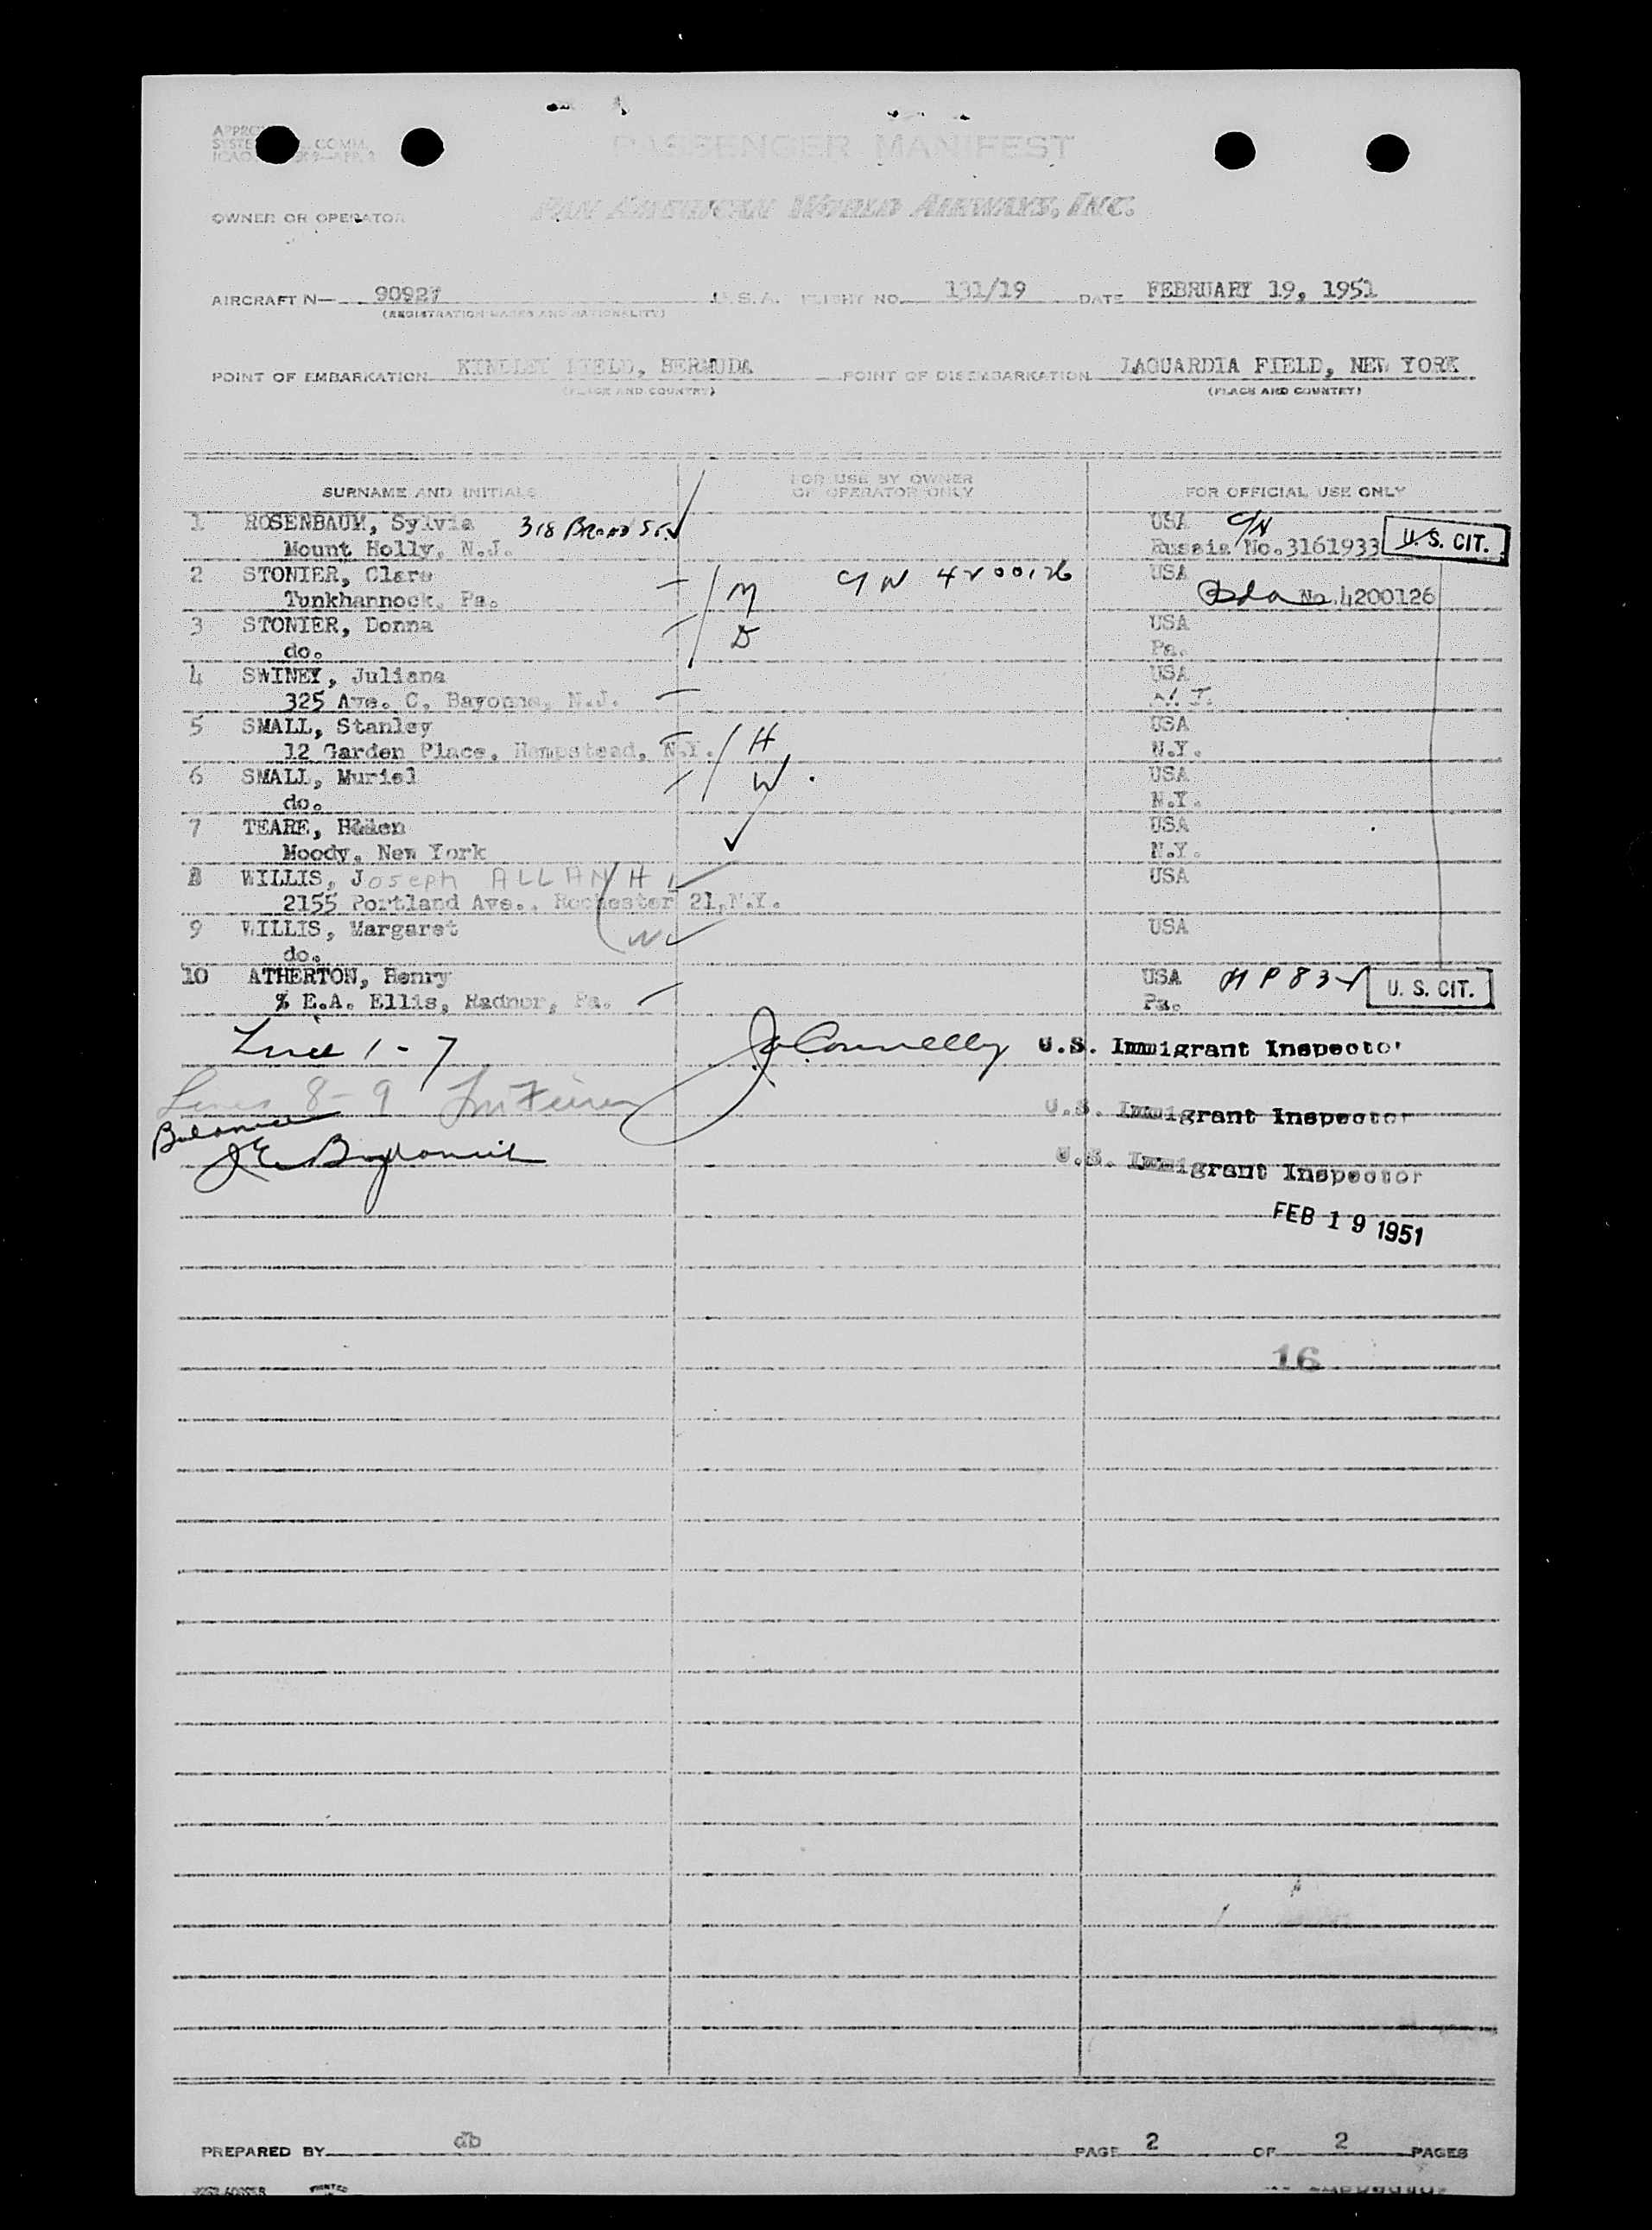 PASSENGER MANIFEST
OWNER OR OPERATOR PAN AMERICAN WORLD AIRWAYS, INC.
AIRCRAFT N— 90927 U.S.A. FLIGHT NO. 131/19 DATE FEBRUARY 19, 1951
(REGISTRATION MARKS AND NATIONALITY)
POINT OF EMBARKATION KINDLEY FIELD, BERMUDA POINT OF DISEMBARKATION LAGUARDIA FIELD, NEW YORK
(PLACE AND COUNTRY) (PLACE AND COUNTRY)
SURNAME AND INITIALS FOR USE BY OWNER OR OPERATOR ONLY FOR OFFICIAL USE ONLY
1 ROSENBAUM, Sylvia 318 BROAD ST. USA C/N
Mount Holly, N.J. Russia No.3161933 U. S. CIT.
2 STONIER, Clare M C/N 4200126 USA
Tunkhannock, Pa. Bda No.4200126
3 STONIER, Donna D USA
do. Pa.
4 SWINEY, Juliana USA
325 Ave. C, Bayonne, N.J. N.J.
5 SMALL, Stanley H USA
12 Garden Place, Hempstead, N.Y. N.Y.
6 SMALL, Muriel W USA
do. N.Y.
7 TEARE, Helen USA
Moody, New York N.Y.
8 WILLIS, Joseph ALLAN H USA
2155 Portland Ave., Rochester 21, N.Y.
9 WILLIS, Margaret W USA
do.
10 ATHERTON, Henry USA
% E.A. Ellis, Radnor, Pa. Pa. U. S. CIT.
Line 1-7 J. Connelly U.S. Immigrant Inspector
Lines 8-9 U.S. Immigrant Inspector
Balance
U.S. Immigrant Inspector
FEB 19 1951
16
PREPARED BY db PAGE 2 OF 2 PAGES
PRINTED